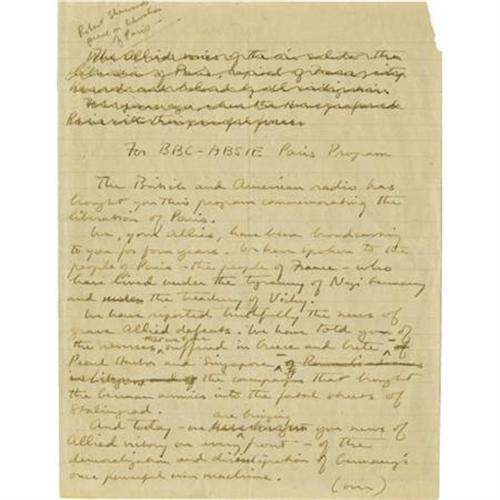 Robert Sherwood's
piece on liberation
of Paris —
The Allied voices of the air salute the
liberation of Paris, capital of
and beloved by all
Paris
For BBC - ABSIE Paris Program
The British and American radio has
brought you this program commemorating the
liberation of Paris.
We, your Allies, have been broadcasting
to you for four years. We have spoken to the
people of Paris - the people of France - who
have lived under the tyranny of Nazi Germany
and under the treachery of Vichy.
We have reported truthfully the news of
grave Allied defeats. We have told you of
the reverses that we have suffered in Greece and Crete, - of
Pearl Harbor and Singapore - of
in Libya and of the campaigns that brought
the German armies into the fatal streets of
Stalingrad.
And today - we are bringing you news of
Allied victory on every front - of the
demoralization and disintegration of Germany's
once powerful war machine.
(over)